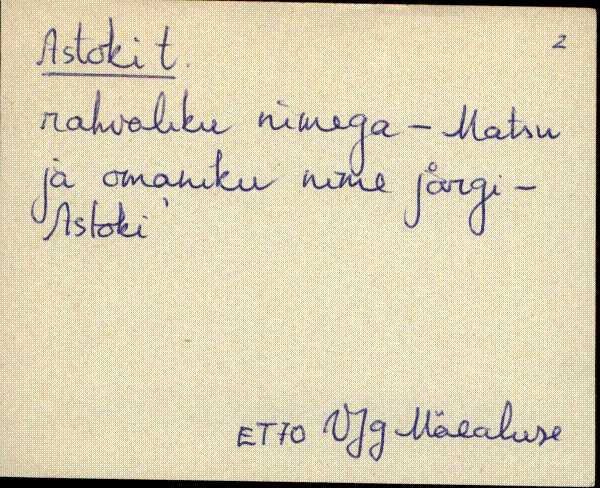 Astoki t. 2
rahvaliku nimega - Matsu
ja omaniku nime järgi -
Astoki
ET70 VJg Mäealuse